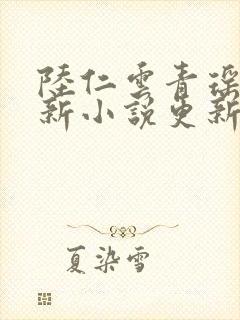 陸仁雲青瑤
新小說更新
夏染雪